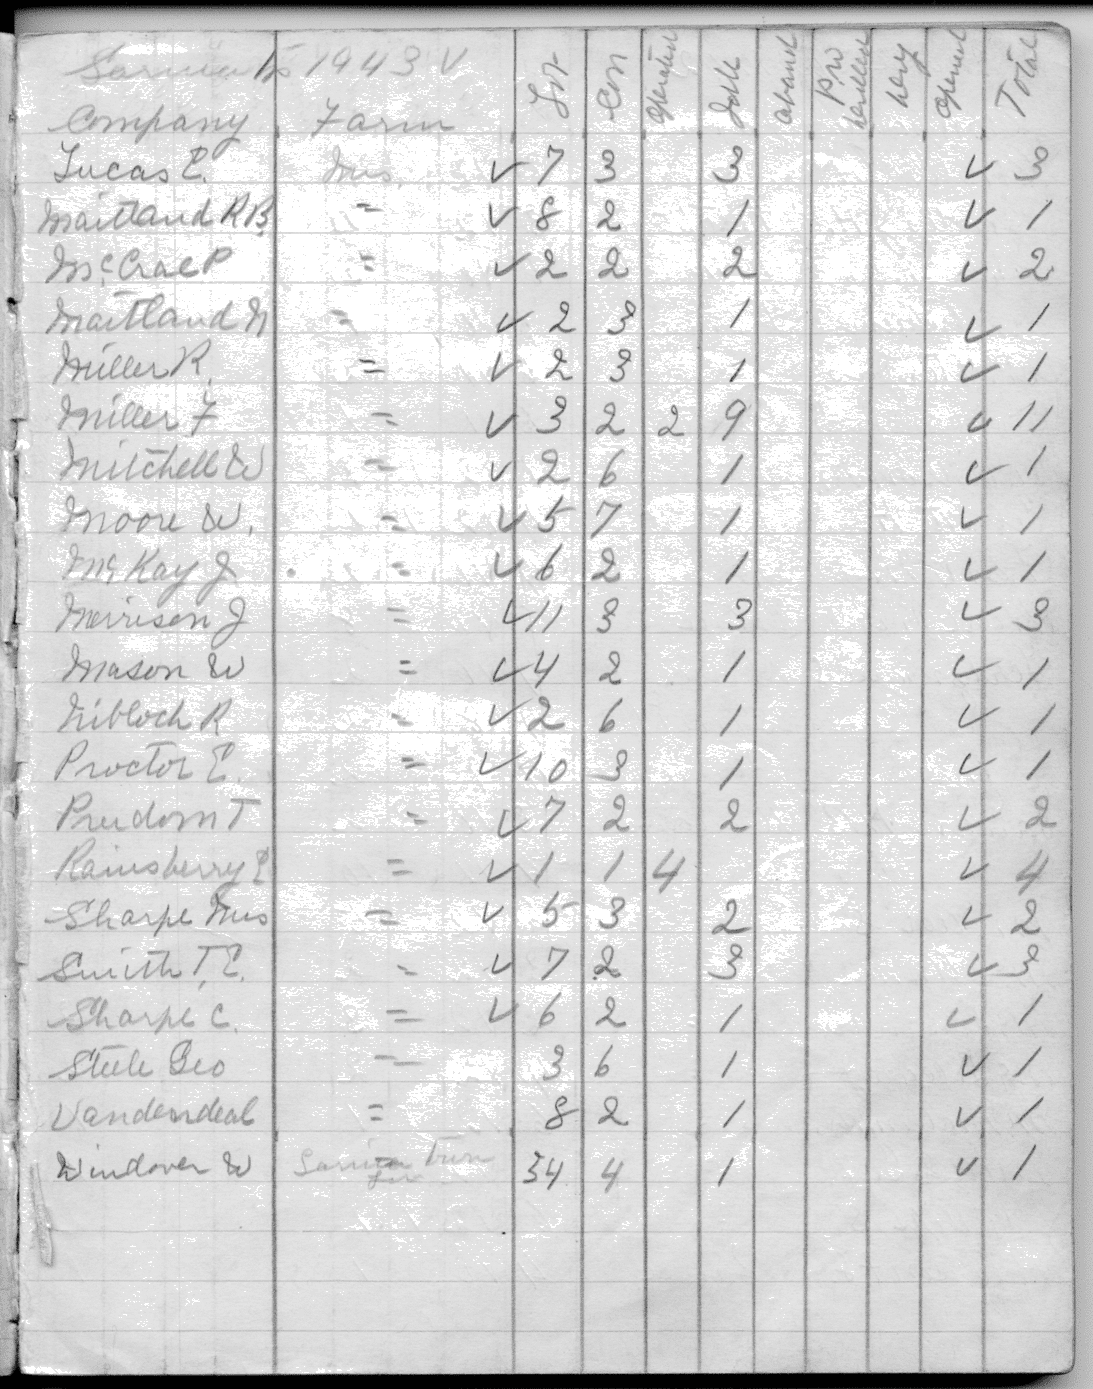 1943 ✓
Company Farm Lot Con Operated Idle Aband P.W. Drilled Dry Operend Total
Lucas E. Mrs. ✓ 7 3 3 ✓ 3
Maitland R B. = ✓ 8 2 1 ✓ 1
McCrae P = ✓ 2 2 2 ✓ 2
Maitland N = ✓ 2 3 1 ✓ 1
Miller R. = ✓ 2 3 1 ✓ 1
Miller F = ✓ 3 2 2 9 ✓ 11
Mitchell W = ✓ 2 6 1 ✓ 1
Moore W. = ✓ 5 7 1 ✓ 1
McKay J = ✓ 6 2 1 ✓ 1
Morrison J = ✓ 11 3 3 ✓ 3
Mason W = ✓ 4 2 1 ✓ 1
Nibloch R = ✓ 2 6 1 ✓ 1
Proctor E. = ✓ 10 3 1 ✓ 1
Prudom T = ✓ 7 2 2 ✓ 2
Rainsberry E = ✓ 1 1 4 ✓ 4
Sharpe Mrs = ✓ 5 3 2 ✓ 2
Smith T, E. = ✓ 7 2 3 ✓ 3
Sharpe C. = ✓ 6 2 1 ✓ 1
Steele Geo = 3 6 1 ✓ 1
Vandendeal = 8 2 1 ✓ 1
Windover W Sarnia 34 4 1 ✓ 1